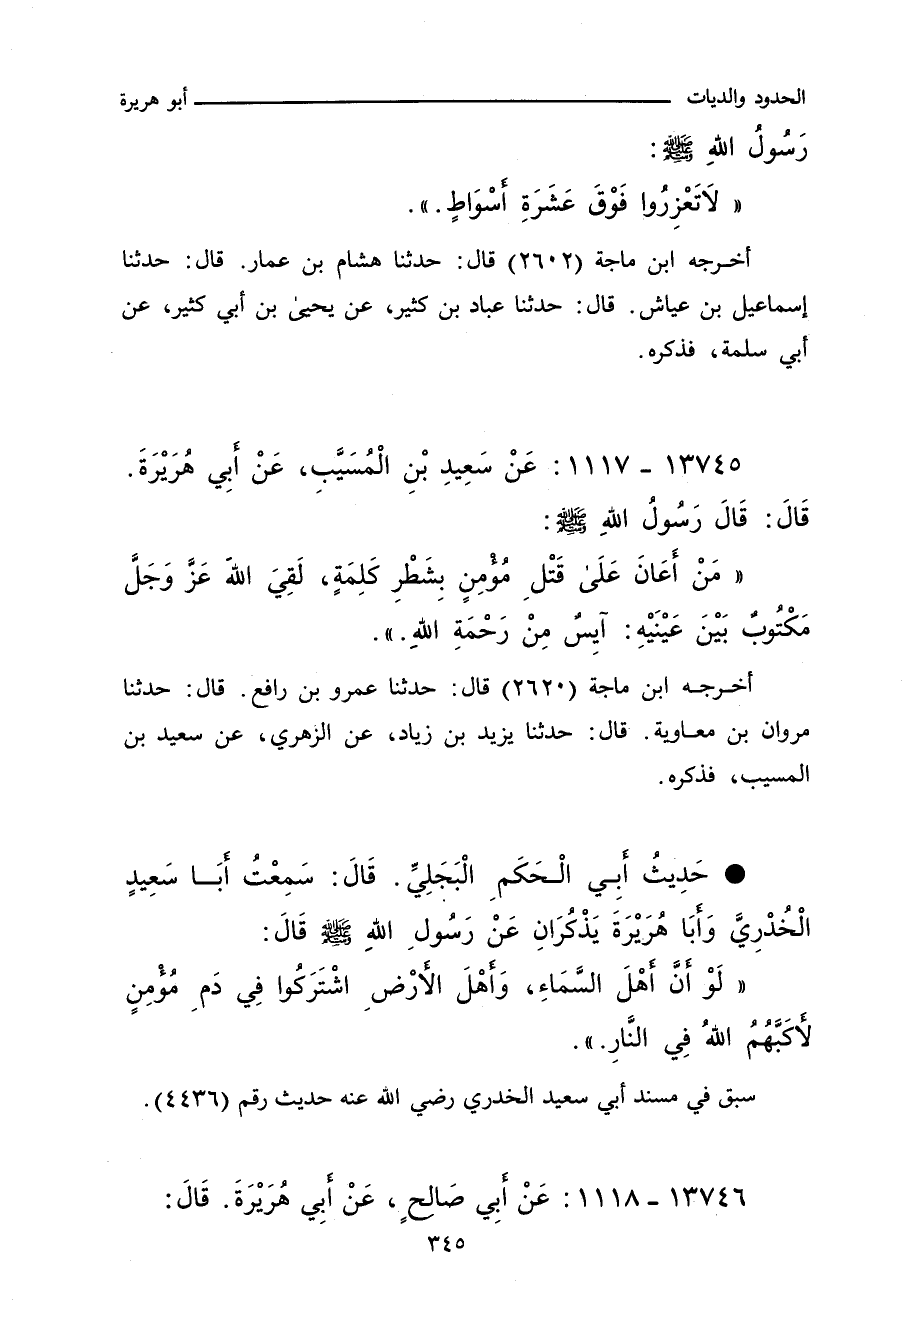 الحدود والديات ــــــــــــــــــــ أبو هريرة
رَسُولُ اللهِ ﷺ:
« لَاتَعْزِرُوا فَوْقَ عَشَرَةِ أَسْوَاطٍ. ».
أخـرجه ابن ماجة (٢٦٠٢) قال: حدثنا هشام بن عمار. قال: حدثنا
إسماعيل بن عياش. قال: حدثنا عباد بن كثير، عن يحيىٰ بن أبي كثير، عن
أبي سلمة، فذكره.
١٣٧٤٥ ـ ١١١٧: عَنْ سَعِيدِ بْنِ الْمُسَيَّبِ، عَنْ أَبِي هُرَيْرَةَ.
قَالَ: قَالَ رَسُولُ اللهِ ﷺ:
« مَنْ أَعَانَ عَلَىٰ قَتْلِ مُؤْمِنٍ بِشَطْرِ كَلِمَةٍ، لَقِيَ اللهَ عَزَّ وَجَلَّ
مَكْتُوبٌ بَيْنَ عَيْنَيْهِ: آيِسٌ مِنْ رَحْمَةِ اللهِ. ».
أخـرجـه ابن ماجة (٢٦٢٠) قال: حدثنا عمرو بن رافع. قال: حدثنا
مروان بن معـاوية. قال: حدثنا يزيد بن زياد، عن الزهري، عن سعيد بن
المسيب، فذكره.
● حَدِيثُ أَبِـي الْـحَكَمِ الْبَجَلِيِّ. قَالَ: سَمِعْتُ أَبَـا سَعِيدٍ
الْخُدْرِيَّ وَأَبَا هُرَيْرَةَ يَذْكُرَانِ عَنْ رَسُولِ اللهِ ﷺ قَالَ:
« لَوْ أَنَّ أَهْلَ السَّمَاءِ، وَأَهْلَ الأَرْضِ اشْتَرَكُوا فِي دَمِ مُؤْمِنٍ
لَأَكَبَّهُمُ اللهُ فِي النَّارِ. ».
سبق في مسند أبي سعيد الخدري رضي الله عنه حديث رقم (٤٤٣٦).
١٣٧٤٦ ـ ١١١٨: عَنْ أَبِي صَالِحٍ، عَنْ أَبِي هُرَيْرَةَ. قَالَ:
٣٤٥